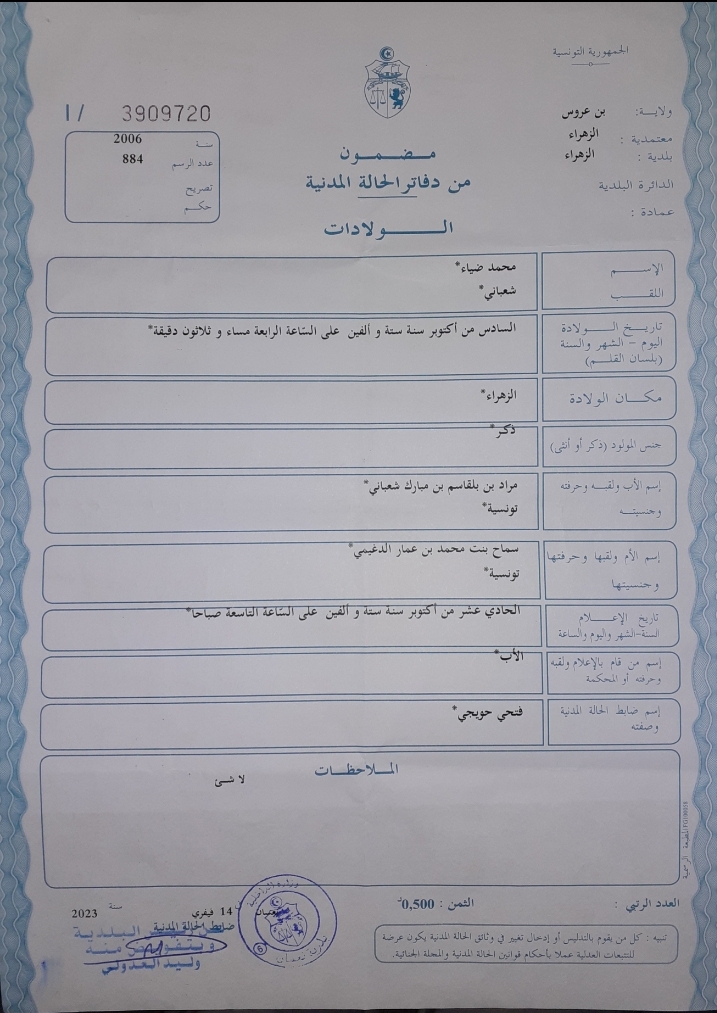 الجمهورية التونسية
ولاية: بن عروس
معتمدية : الزهراء
بلدية : الزهراء
الدائرة البلدية
عمادة :
I / 3909720
سنة 2006
عدد الرسم 884
تصريح
حكم
مضمون
من دفاتر الحالة المدنية
الولادات
الإسم محمد ضياء*
اللقب شعباني*
تاريخ الولادة
اليوم - الشهر والسنة
(بلسان القلم)
السادس من أكتوبر سنة ستة و ألفين على السّاعة الرابعة مساء و ثلاثون دقيقة*
مكان الولادة الزهراء*
جنس المولود (ذكر أو أنثى) ذكر*
إسم الأب ولقبه وحرفته
وجنسيته
مراد بن بلقاسم بن مبارك شعباني*
تونسية*
إسم الأم ولقبها وحرفتها
وجنسيتها
سماح بنت محمد بن عمار الدغيمي*
تونسية*
تاريخ الإعلام
السنة-الشهر واليوم والساعة
الحادي عشر من أكتوبر سنة ستة و ألفين على السّاعة التاسعة صباحا*
إسم من قام بالإعلام ولقبه
وحرفته أو المحكمة
الأب*
إسم ضابط الحالة المدنية
وصفته
فتحي حويجي*
الملاحظات
لا شئ
المطبعة الرسمية
العدد الرتبي : الثمن : 0,500د
14 فيفري سنة 2023
ضابط الحالة المدنية
البلدية
وبتفويض منه
وليد العدولي
تنبيه : كل من يقوم بالتدليس أو إدخال تغيير في وثائق الحالة المدنية يكون عرضة
للتتبعات العدلية عملا بأحكام قوانين الحالة المدنية والمجلة الجنائية.